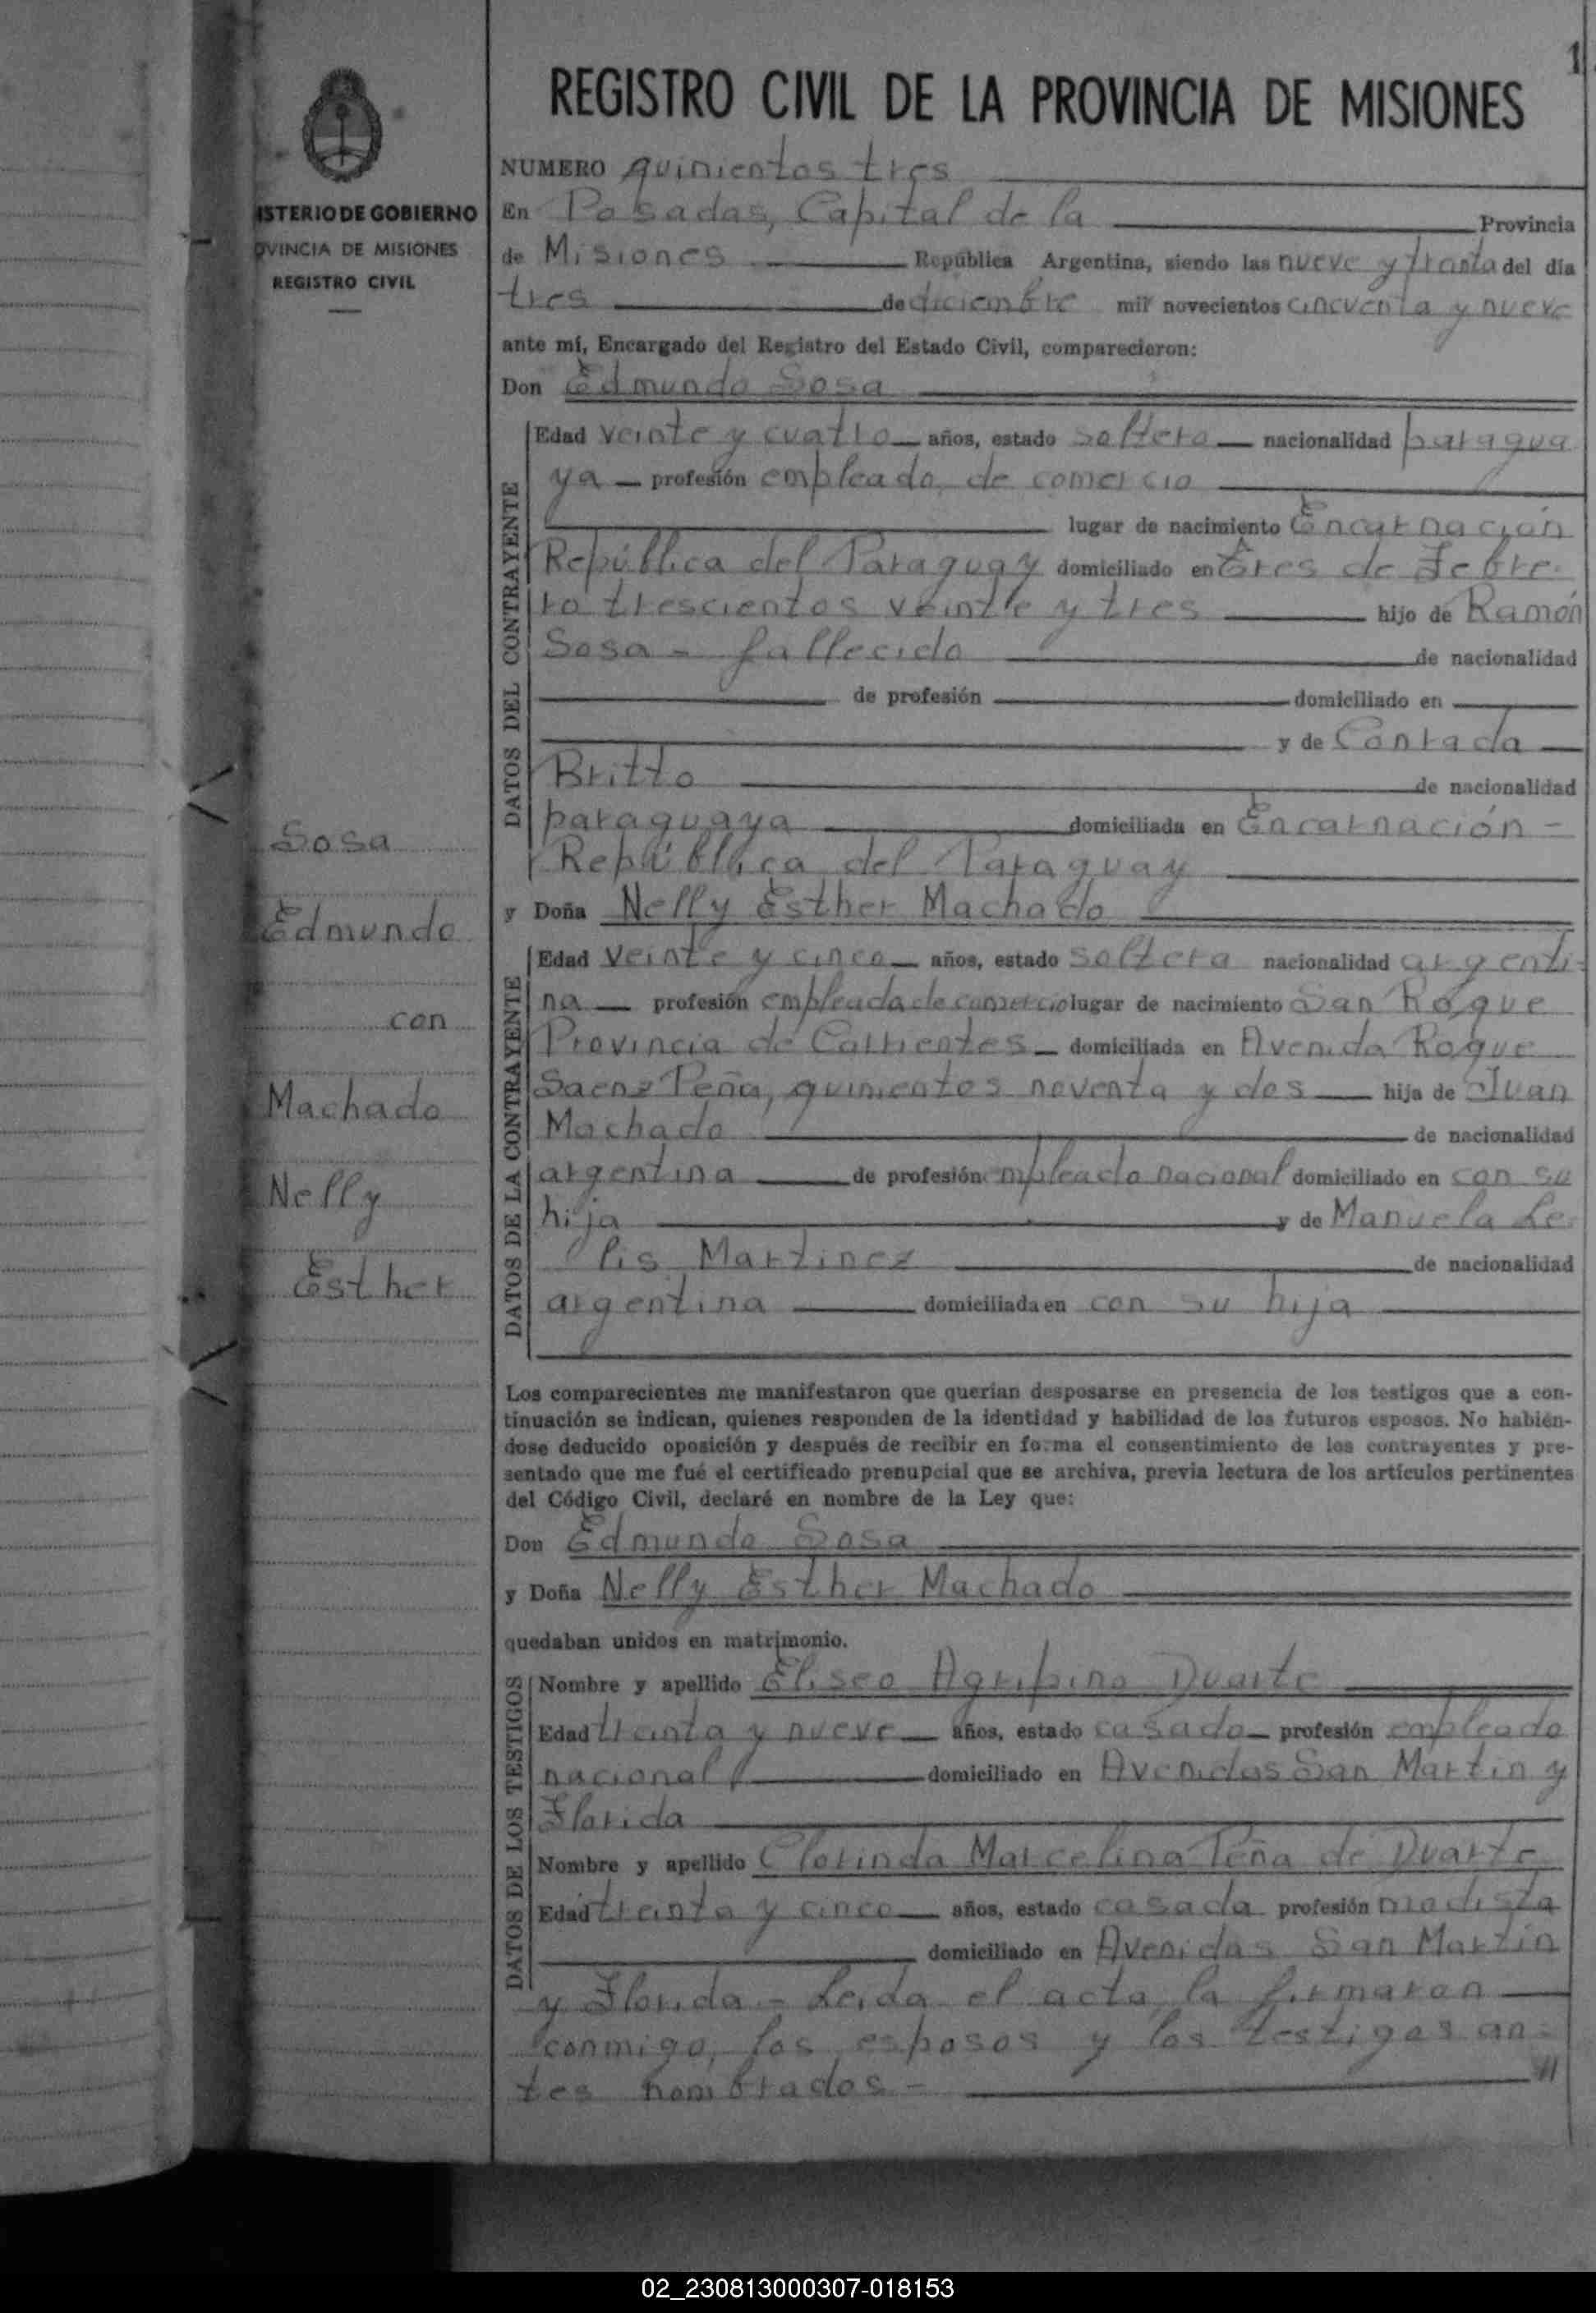 1
REGISTRO CIVIL DE LA PROVINCIA DE MISIONES
ISTERIO DE GOBIERNO
OVINCIA DE MISIONES
REGISTRO CIVIL
NUMERO quinientos tres
En Posadas, Capital de la Provincia
de Misiones República Argentina, siendo las nueve y treinta del día
tres de diciembre mil novecientos cincuenta y nueve
ante mí, Encargado del Registro del Estado Civil, comparecieron:
Don Edmundo Sosa
DATOS DEL CONTRAYENTE
Edad veinte y cuatro años, estado soltero nacionalidad paragua
ya profesión empleado de comercio
lugar de nacimiento Encarnación
República del Paraguay domiciliado en Tres de Febre-
ro trescientos veinte y tres hijo de Ramón
Sosa - fallecido de nacionalidad
de profesión domiciliado en
y de Conrada
Britto de nacionalidad
paraguaya domiciliada en Encarnación -
República del Paraguay
y Doña Nelly Esther Machado
DATOS DE LA CONTRAYENTE
Edad veinte y cinco años, estado soltera nacionalidad argenti-
na profesión empleada de comercio lugar de nacimiento San Roque
Provincia de Corrientes domiciliada en Avenida Roque
Saenz Peña, quinientos noventa y dos hija de Juan
Machado de nacionalidad
argentina de profesión empleado nacional domiciliado en con su
hija y de Manuela Le-
lis Martinez de nacionalidad
argentina domiciliada en con su hija
Los comparecientes me manifestaron que querían desposarse en presencia de los testigos que a con-
tinuación se indican, quienes responden de la identidad y habilidad de los futuros esposos. No habién-
dose deducido oposición y después de recibir en forma el consentimiento de los contrayentes y pre-
sentado que me fué el certificado prenupcial que se archiva, previa lectura de los artículos pertinentes
del Código Civil, declaré en nombre de la Ley que:
Don Edmundo Sosa
y Doña Nelly Esther Machado
quedaban unidos en matrimonio.
DATOS DE LOS TESTIGOS
Nombre y apellido Eliseo Agripino Duarte
Edad treinta y nueve años, estado casado profesión empleado
nacional domiciliado en Avenidas San Martin y
Florida
Nombre y apellido Clorinda Marcelina Peña de Duarte
Edad treinta y cinco años, estado casada profesión modista
domiciliado en Avenidas San Martin
y Florida - Leida el acta la firmaron
conmigo, los esposos y los testigos an-
tes nombrados -
Sosa
Edmundo
con
Machado
Nelly
Esther
02_230813000307-018153